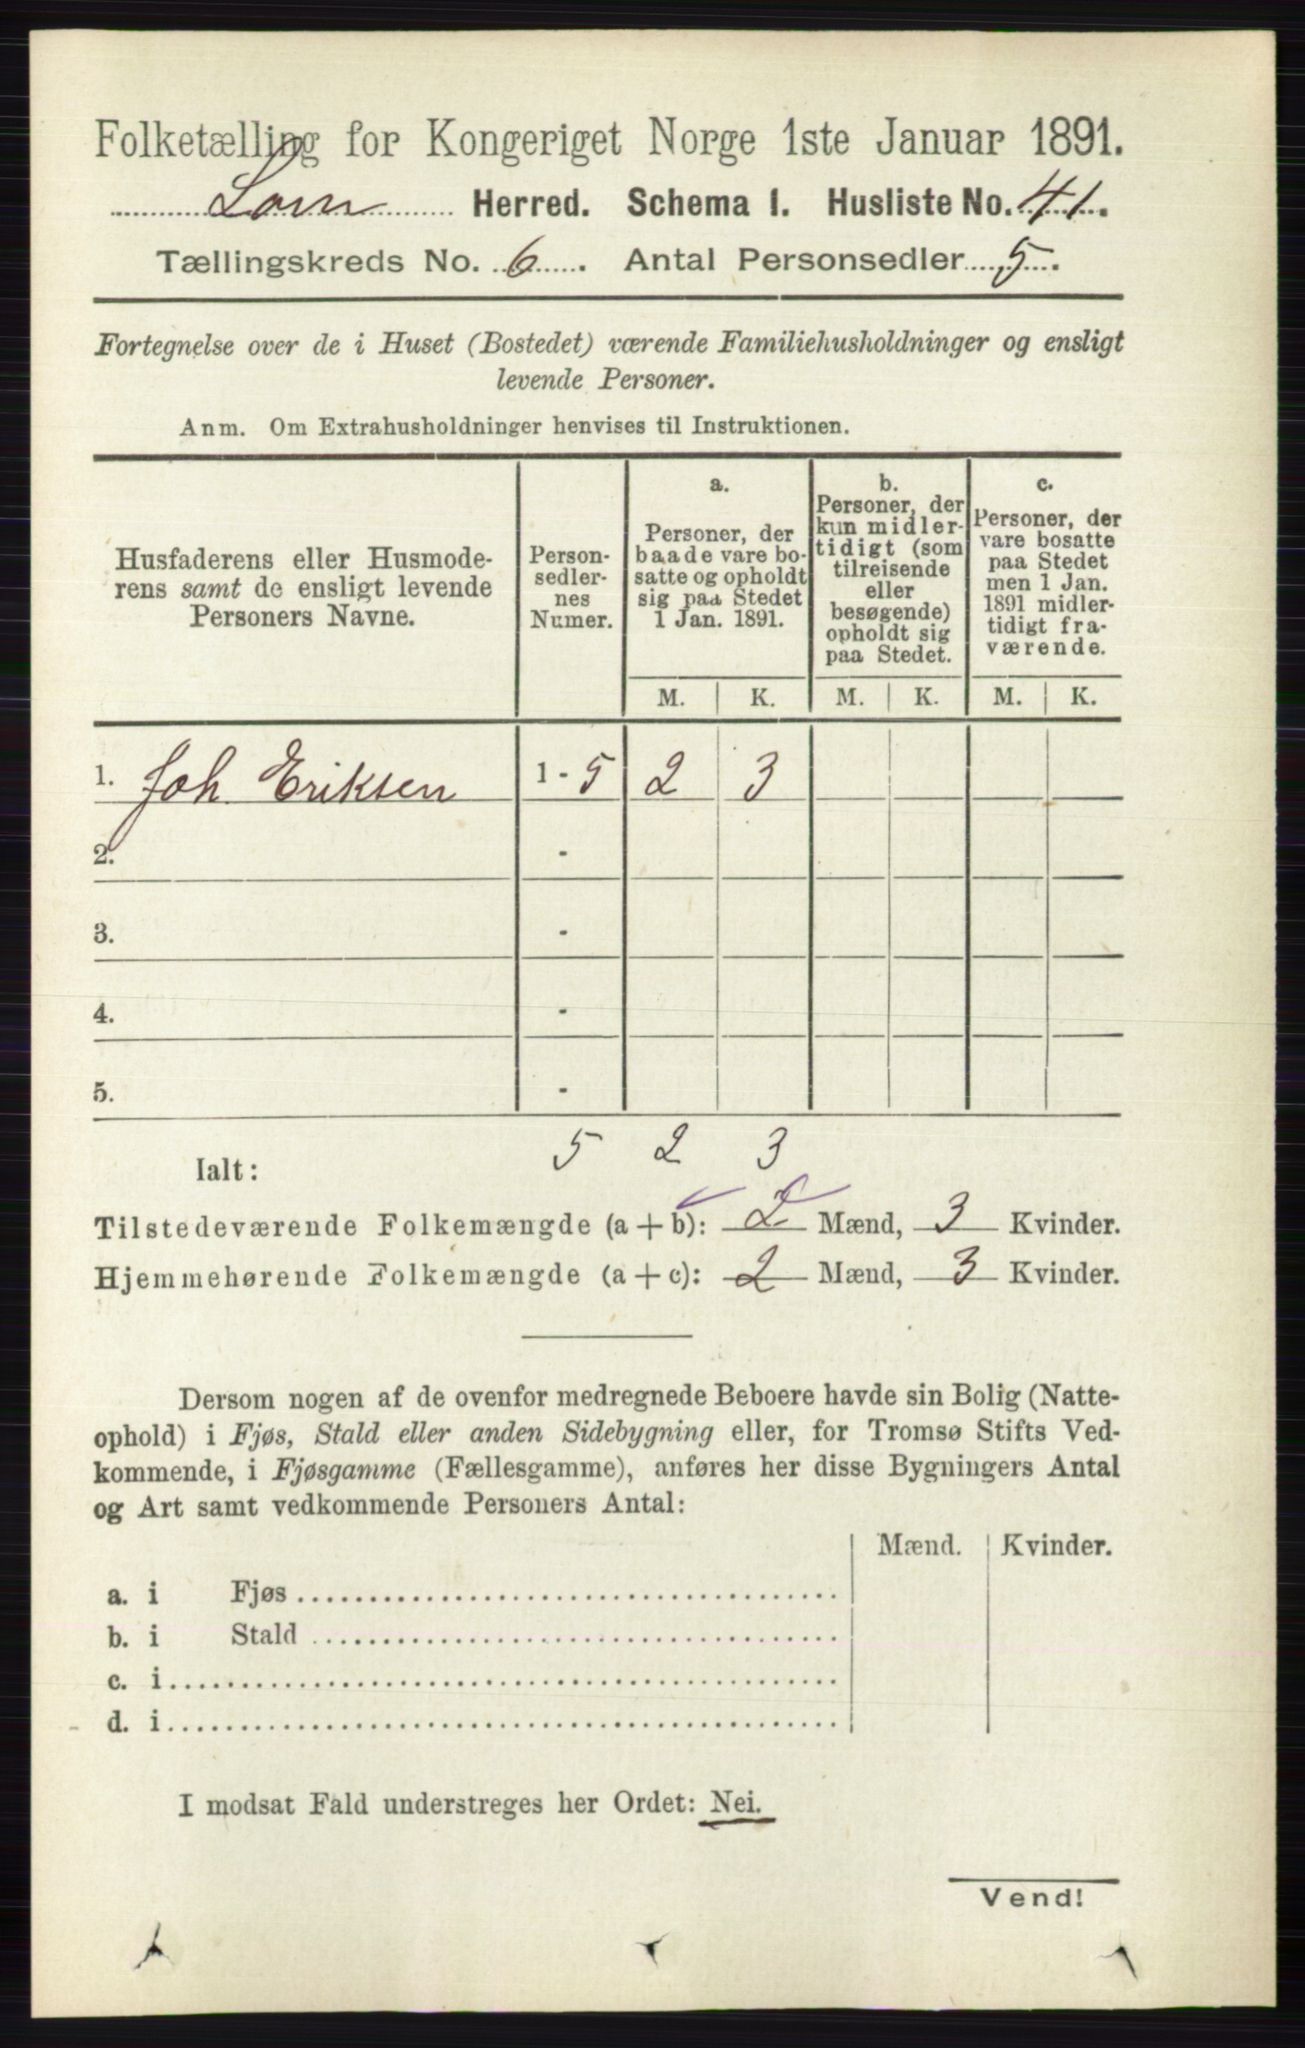 Folketælling for Kongeriget Norge 1ste Januar 1891.
Lom Herred. Schema I. Husliste No. 41.
Tællingskreds No. 6. Antal Personsedler 5.
Fortegnelse over de i Huset (Bostedet) værende Familiehusholdninger og ensligt
levende Personer.
Anm. Om Extrahusholdninger henvises til Instruktionen.
Husfaderens eller Husmode-
rens samt de ensligt levende
Personers Navne.
Person-
sedler-
nes
Numer.
a.
Personer, der
baade vare bo-
satte og opholdt
sig paa Stedet
1 Jan. 1891.
b.
Personer, der
kun midler-
tidigt (som
tilreisende
eller
besøgende)
opholdt sig
paa Stedet.
c.
Personer, der
vare bosatte
paa Stedet
men 1 Jan.
1891 midler-
tidigt fra-
værende.
M. K. M. K. M. K.
1. Joh. Eriksen 1 - 5 2 3
2. -
3. -
4. -
5. -
Ialt: 5 2 3
Tilstedeværende Folkemængde (a + b): 2 Mænd, 3 Kvinder.
Hjemmehørende Folkemængde (a + c): 2 Mænd, 3 Kvinder.
Dersom nogen af de ovenfor medregnede Beboere havde sin Bolig (Natte-
ophold) i Fjøs, Stald eller anden Sidebygning eller, for Tromsø Stifts Ved-
kommende, i Fjøsgamme (Fællesgamme), anføres her disse Bygningers Antal
og Art samt vedkommende Personers Antal:
Mænd. Kvinder.
a. i Fjøs
b. i Stald
c. i
d. i
I modsat Fald understreges her Ordet: Nei.
Vend!